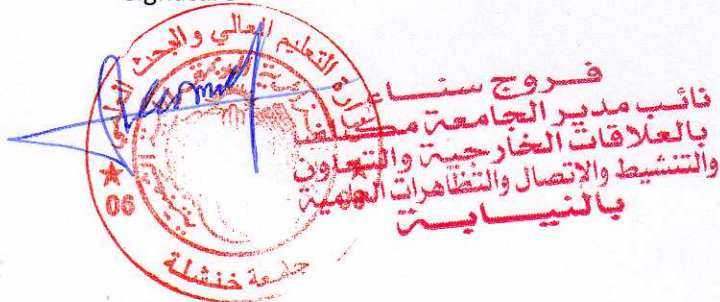 Signature
وزارة التعليم العالي والبحث العلمي
06
جامعة خنشلة
فروج سناء
نائب مدير الجامعة مكلفا
بالعلاقات الخارجية والتعاون
والتنشيط والاتصال والتظاهرات العلمية
بالنيابة